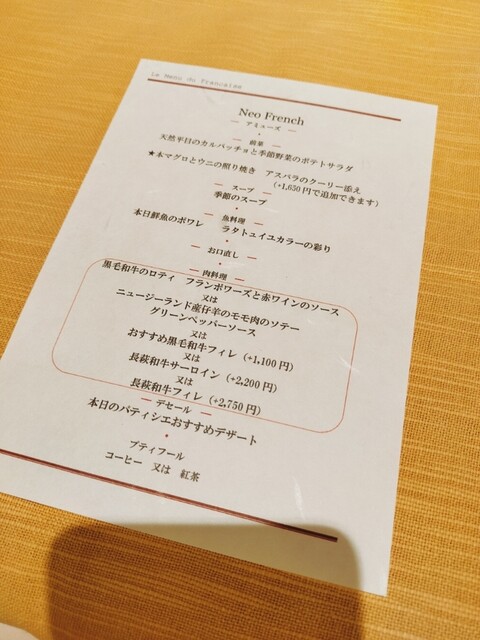 Le Menu du Francaise
Neo French
— アミューズ —
— 前菜 —
天然平目のカルパッチョと季節野菜のポテトサラダ
★本マグロとウニの照り焼き アスパラのクーリー添え
(+1,650円で追加できます)
— スープ —
季節のスープ
— 魚料理 —
本日鮮魚のポワレ ラタトゥイユカラーの彩り
— お口直し —
— 肉料理 —
黒毛和牛のロティ フランボワーズと赤ワインのソース
又は
ニュージーランド産仔羊のモモ肉のソテー
グリーンペッパーソース
又は
おすすめ黒毛和牛フィレ (+1,100円)
又は
長萩和牛サーロイン (+2,200円)
又は
長萩和牛フィレ (+2,750円)
— デセール —
本日のパティシエおすすめデザート
プティフール
コーヒー 又は 紅茶